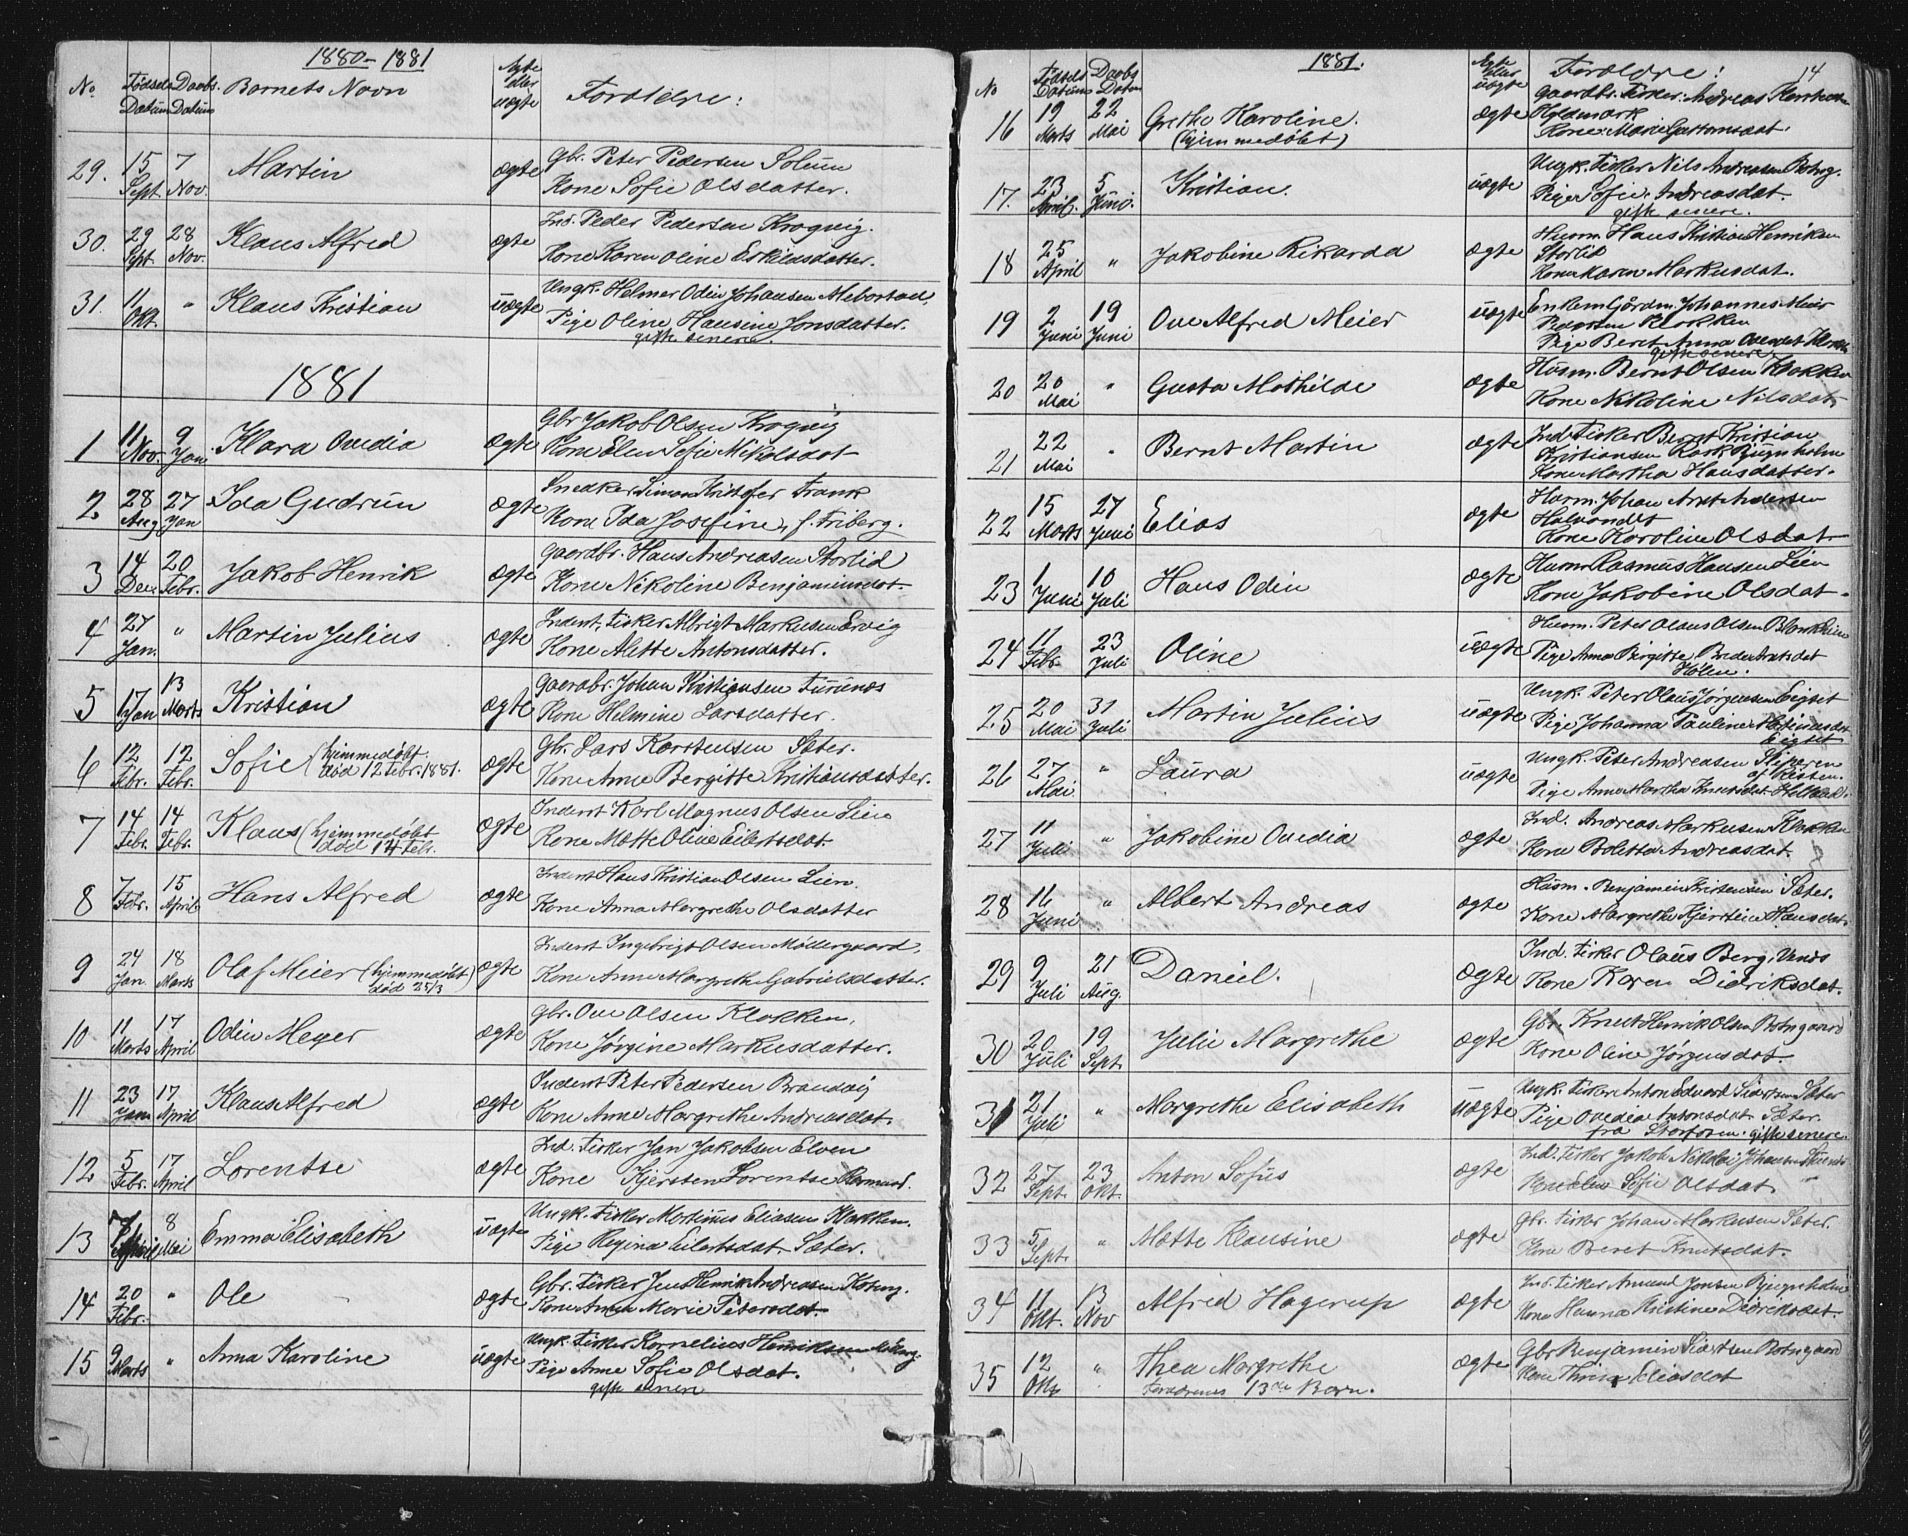 1880-1881
No. Fødsels Datum Daabs. Datum Barnets Navn Ægte eller uægte Forældre:
29. 15 Sept. 7 Nov. Martin ægte Gbr. Peter Pedersen Solum
Kone Sofie Olsdatter.
30. 29 Sept. 28 Nov. Klaus Alfred ægte Ind. Peder Pedersen Krogvig.
Kone Karen Oline Eskildsdatter.
31. 11 Okt. " Klaus Kristian uægte Ungk. Helmer Odin Johansen Mebostad,
Pige Oline Hansine Jonsdatter.
gift senere.
1881
1 11 Nov. 9 Jan. Klara Ovedia ægte Gbr Jakob Olsen Krogvig
Kone Elen Sofie Nikolsdat
2 28 Aug 27 Jan Ida Gudrun ægte Snedker Simon Kristofer Frank
Kone Ida Josefine, f. Friberg.
3 14 Dec. 20 Febr. Jakob Henrik ægte Gaardbr. Hans Andreasen Storlid
Kone Nikoline Benjaminsdat.
4 27 Jan. " Martin Julius ægte Inderst, Fisker Albrigt Markusen Ervig
Kone Alette Antonsdatter.
5 17 Jan 13 Marts Kristian ægte Gaardbr. Johan Kristiansen Furunes
Kone Helmine Larsdatter.
6 12 Febr. 12 Febr. Sofie (hjemmedøbt. død 12 Febr. 1881. ægte Gbr. Lars Karstensen Sæter.
Kone Anne Bergitte Kristiansdatter.
7 14 Febr. 14 Febr. Klaus (hjemmedøbt død 14 Febr. ægte Inderst Karl Magnus Olsen Lien
Kone Mette Oline Eilertsdat.
8 7 Febr. 15 April. Hans Alfred ægte Inderst Hans Kristian Olsen Lien.
Kone Anna Margrethe Olsdatter
9 24 Jan 18 Marts Olaf Meier (hjemmedøbt død 25/3 ægte Inderst Ingebrigt Olsen Møllergaard,
Kone Anne Margrethe Gabrielsdatter.
10 11 Marts 17 April Odin Meyer ægte Gbr. Ove Olsen Klokken,
Kone Jørgine Markusdatter.
11 23 Jan 17 April Klaus Alfred ægte Inderst Peter Pedersen Brandvig
Kone Anne Margrethe Andreasdat.
12 5 Febr. 17 April Lorentse ægte Ind. Fisker Jan Jakobsen Elven
Kone Kjersten Lorentse
13 April 8 Mai Emma Elisabeth uægte Ungk. Fisker Martinus Eliasen Klakken.
Pige Regina Eilertsdat. Sæter.
14 20 Febr. " Ole ægte Gbr. Fisker Jens Henrik Andreasen
Kone Anna Marie Petersdat
15 9 Marts " Anna Karoline uægte Ungk. Fisker Kornelius Henriksen
Pige Anne Sofie Olsdat.
gift senere
1881. 14
No Fødsels Datum Daabs Datum Ægte eller uægte Forældre:
16 19 Marts 22 Mai Grethe Karoline. (hjemmedøbt) ægte Gaardbr. Fisker: Andreas Karstensen
Holdmark
Kone: Marie Guttormsdat.
17. 23 April. 5 Juni. Kristian. uægte Ungk. Fisker Nils Andreasen Botng.
Pige Sofie Andreasdat.
gift senere.
18 25 April " Jakobine Rikarda ægte Husm. Hans Kristian Henriksen
Storlid
Kone Karen Markusdat.
19 2 Juni 19 Juni Ove Alfred Meier uægte Enkem. Gårdm. Johannes Meier
Pedersen Klokken
Pige Beret Anna Ovesdat Klokken
gift senere.
20 20 Mai " Gusta Mathilde ægte Husm. Bernt Olsen Klokken
Kone Nikoline Nilsdat.
21 22 Mai " Bernt Martin ægte Ind. Fisker Bernt Kristian
Kristiansen
Kone Martha Hansdatter.
22 15 Marts 27 Juni Elias ægte Husm. Johan Arnt Andersen
Halvandet
Kone Karoline Olsdat
23 1 Juni 10 Juli Hans Odin ægte Husm Rasmus Hansen Lien
Kone Jakobine Olsdat.
24 11 Febr. 23 Juli Oline uægte Husm. Peter Olaus Olsen
Pige Anna Birgitte
Hølen.
25 20 Mai 31 Juli Martin Julius uægte Ungk. Peter Olaus Jørgensen Eigset
Pige Johanna Pauline Martinusdat.
Eigset
26 27 Mai " Laura uægte Ungk. Peter Andreasen Sliparen
af Rissen.
Pige Anna Martha Knutsdat.
27 11 Juli " Jakobine Ovedia ægte Ind. Andreas Markusen Klokken
Kone Boletta Andreasdat.
28 16 Juni " Albert Andreas ægte Husm. Benjamin Kristensen Sæter.
Kone Margrethe Kjerstine Hansdat.
29 9 Juli 21 Aug. Daniel. ægte Ind. Fisker Olaus Berg,
Kone Karen Didriksdat.
30 20 Juli 19 Sept. Julie Margrethe ægte Gbr. Knut Henrik Olsen Botngaard
Kone Oline Jørgensdat
31 21 Juli " Margrethe Elisabeth uægte Ungk. Fisker Anton Edvard Sivertsen Sæter
Pige Ovedia Antonsdat. Sæter.
fra Storfosen. gift senere.
32 27 Sept. 23 Okt. Anton Sofus ægte Ind. Fisker Jakob Nikolai Johansen
Kone Elen Sofie Olsdat. "
33 5 Sept. " Mette Klausine ægte Gbr. Fisker Johan Markusen Sæter.
Kone Beret Knutsdat.
34 11 Okt. 13 Nov Alfred Hagerup ægte Ind. Fisker Amund Jonsen
Kone Hanna Kristine Didriksdat.
35 12 Okt " Thea Margrethe ægte Gbr Benjamin Sivertsen Botngaard
Forældrenes 13de Barn. Kone Thrina Eliasdat